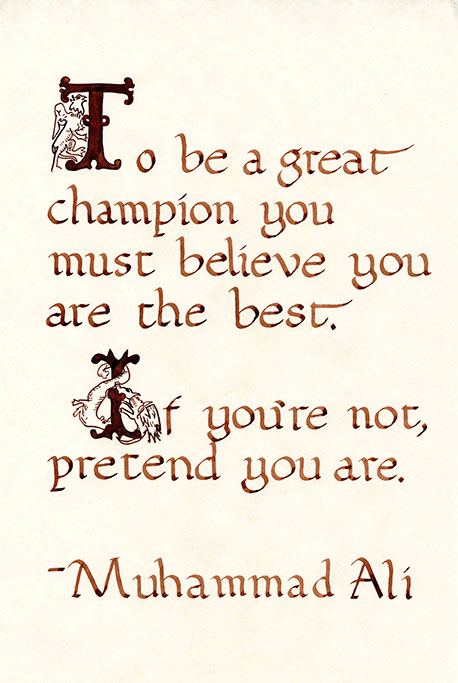 To be a great
champion you
must believe you
are the best.
If you're not,
pretend you are.
-Muhammad Ali